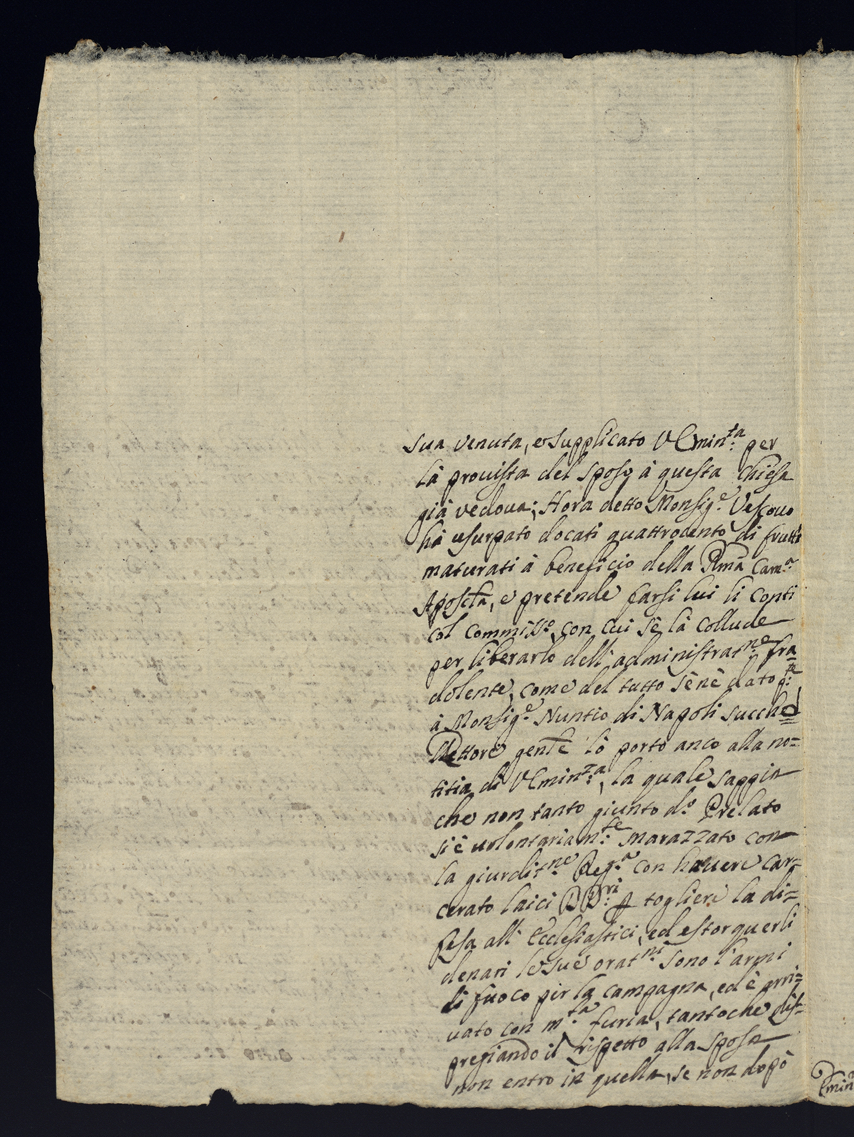 sua venuta, e supplicato V Emin.ta per
la prouista del sposo à questa Chiesa
già vedoua; Hora detto Monsig.e Vescouo
hà usurpato docati quattrocento di frutti
maturati à beneficio della Rma Cam.a
Apostla, e pretende farsi lui li conti
col Commiss.o con cui se la collude
per liberarlo dell'administrat.ne fra=
dolente, come del tutto se n'è dato p.
à Monsig.e Nuntio di Napoli succ
Rettore gente lo porto anco alla no=
titia di V Emin.za, la quale sappia
che non tanto giunto d.o Prelato
s'è volontariam.te marazzato con
la giurdit.ne Reg.a con hauere car=
cerato laici togliere la di=
fesa all' Ecclesiastici, ed estorquerli
denari le sue orat.ni sono l'armi
di fuoco per la campagna, ed è arri=
uato con m.ta furia, tanto che dis=
pregiando il rispetto alla sposa
non entro in quella, se non dopò
Emin